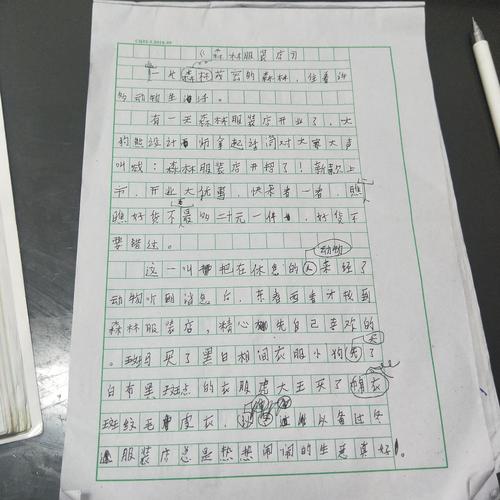 《森林服装店》
一片森林茂密的森林，住着许
多动物生活。
有一天森林服装店开业了，大
狗熊设计师拿起话筒对大家大声
叫喊：森林服装店开榜了！新款上
市，开业大优惠，快来看一看，瞧
瞧好货不最的二十元一件，好货不
要错过。
动物
这一叫把在休息的人来经了
动物听到消息台，东看西看才找到
森林服装店，精心 先自己喜欢的
买
。斑马买了黑白相间衣服小狗 了
白布黑斑点的衣服虎大王买了棉衣
斑纹毛 皮衣， 以备过冬
服装店总是热热闹闹的生意真好。